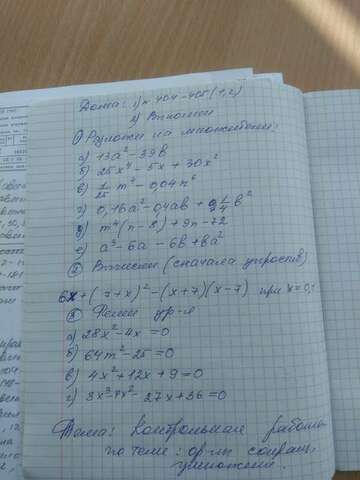 Дома: 1) № 404-405 (1,2)
2) Выполни
① Разложи на множители:
а) 13a² - 39b
б) 25x⁴ - 5x + 30x²
в) 1/25 m⁴ - 0,04n⁶
г) 0,16a² - 0,4ab + 1/4 b²
д) m⁴(n-8) + 9n - 72
е) a³ - 6a - 6b + ba²
② Вычисли (сначала упростив)
6x + (7+x)² - (x+7)(x-7) при x=0,
③ Реши ур-я
а) 28x² - 4x = 0
б) 64m² - 25 = 0
в) 4x² + 12x + 9 = 0
г) 3x³ - 4x² - 27x + 36 = 0
Тема: Контрольная работа
по теме: ф-лы сокращ.
умножения.